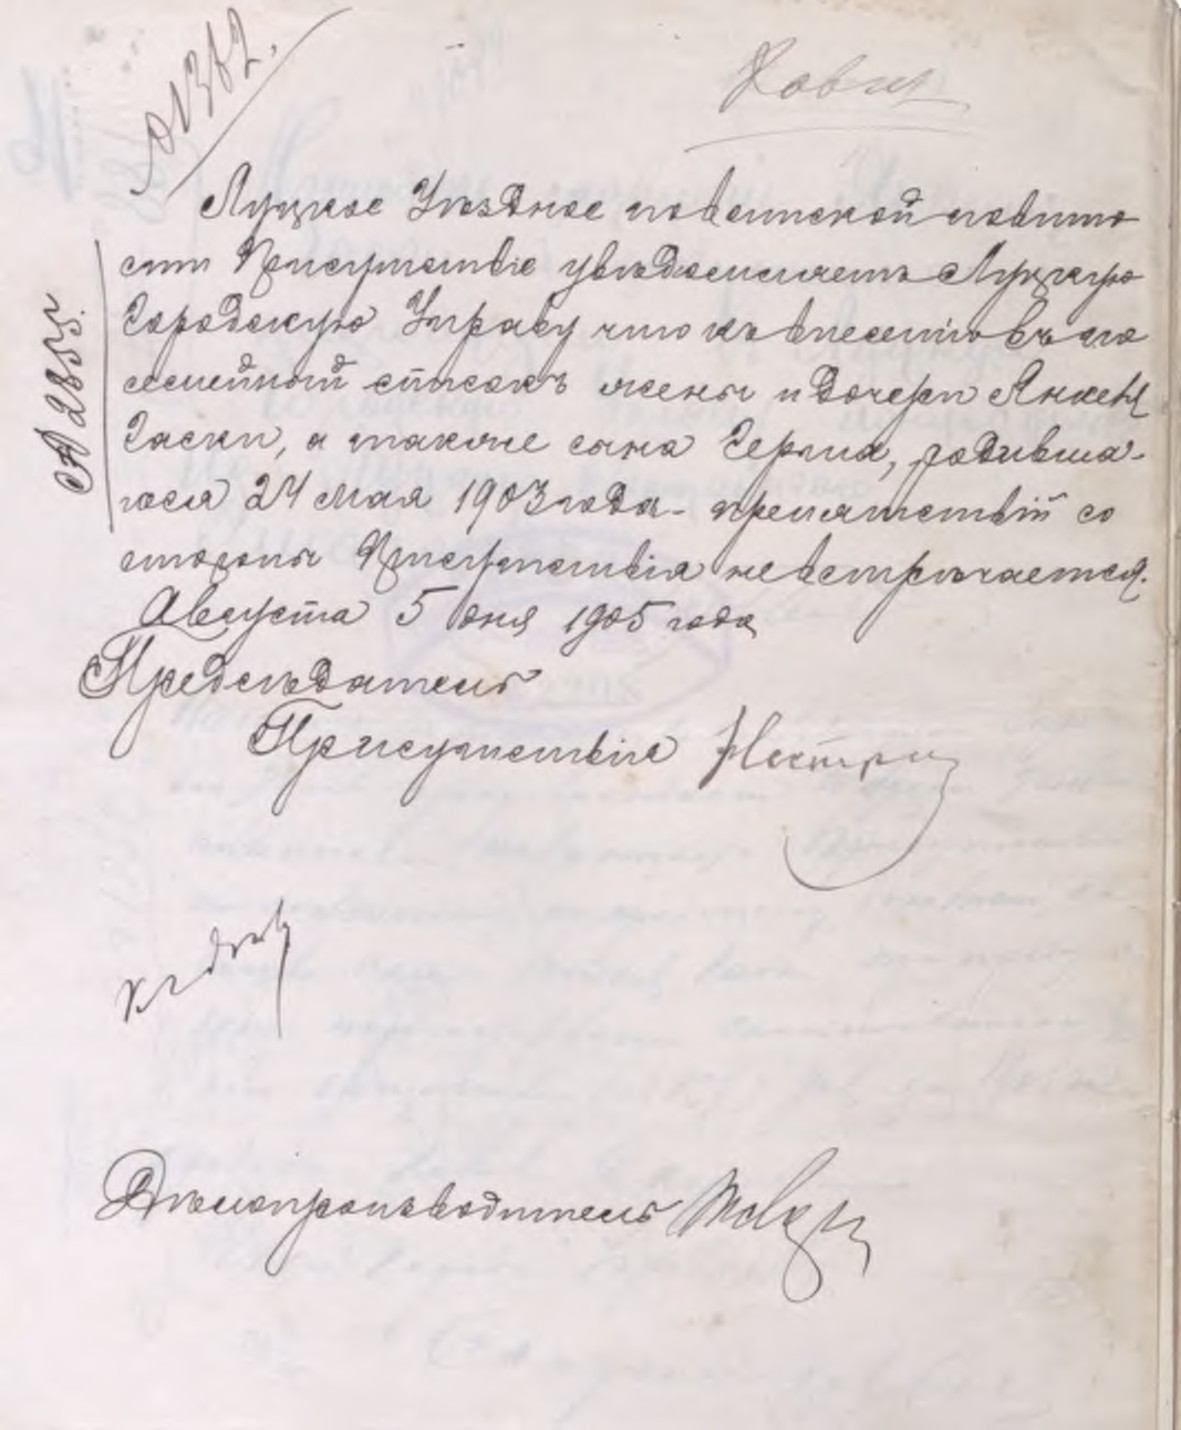 Луцкое Уѣздное по воинской повинно
сти Присутствіе увѣдомляетъ Луцкую
Городскую Управу что къ внесенію въ его
семейный списокъ жены и дочери Янкеля
Гаски, а также сына Герша, родивша-
гося 24 Мая 1903 года - препятствій со
стороны Присутствія не встрѣчается.
Августа 5 дня 1905 года
Предсѣдатель
Присутствія
№ 2855.
Дѣлопроизводитель